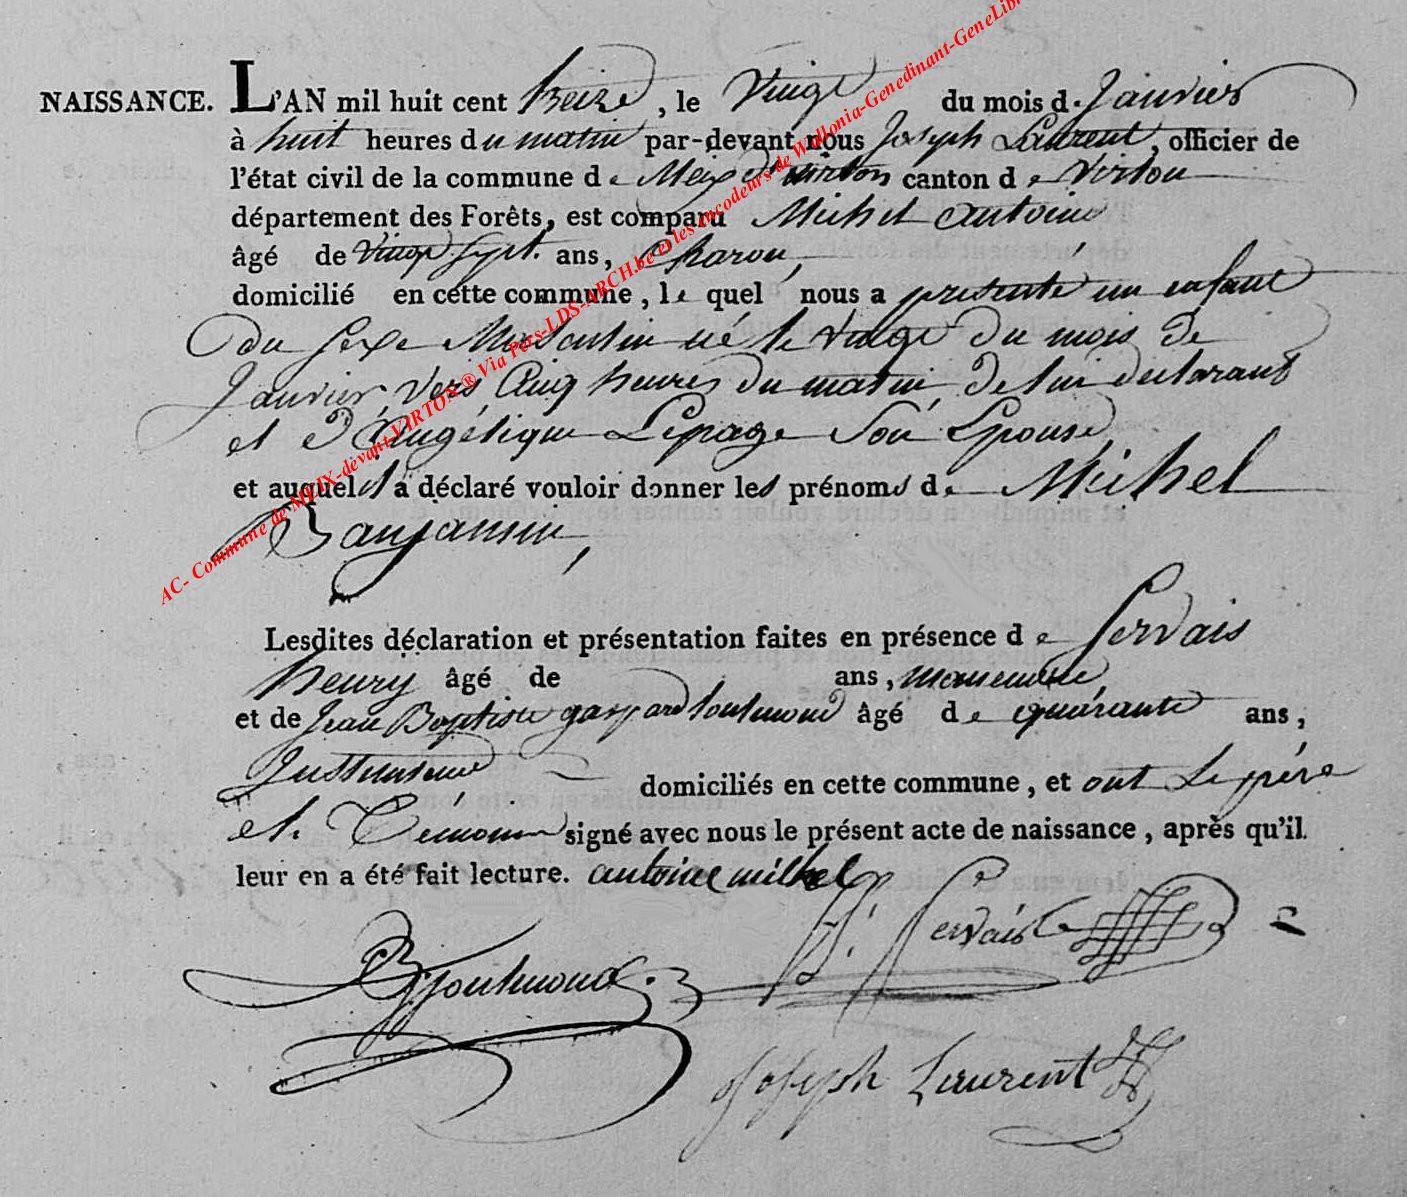 NAISSANCE. L'AN mil huit cent treize, le Vingt du mois de Janvier
à huit heures du matin par-devant nous Joseph Laurent, officier de
l'état civil de la commune de Meix dt virton canton de Virton
département des Forêts, est comparu Michel antoine
âgé de Vingt Sept. ans, Charon,
domicilié en cette commune, le quel nous a presenté un enfant
du Sexe Masculin né le Vingt du mois de
Janvier, Vers Cinq heures du matin, De lui declarant
et D'Angélique Lepage Son Epouse,
et auquel il a déclaré vouloir donner les prénoms de Michel
Banjamin,
Lesdites déclaration et présentation faites en présence de Servais
henry âgé de ans, manœuvre,
et de Jean Baptiste gaspard toulmond âgé de quarante ans,
domiciliés en cette commune, et ont Le père
et. Témoins signé avec nous le présent acte de naissance, après qu'il
leur en a été fait lecture. antoine michel
H. Servais
toulmond
Joseph Laurent
AC- Commune de MEIX-devant VIRTON ® Via Pers-LDS-ARCH.be et les encodeurs de Wallonia-Genedinant-GeneLibr